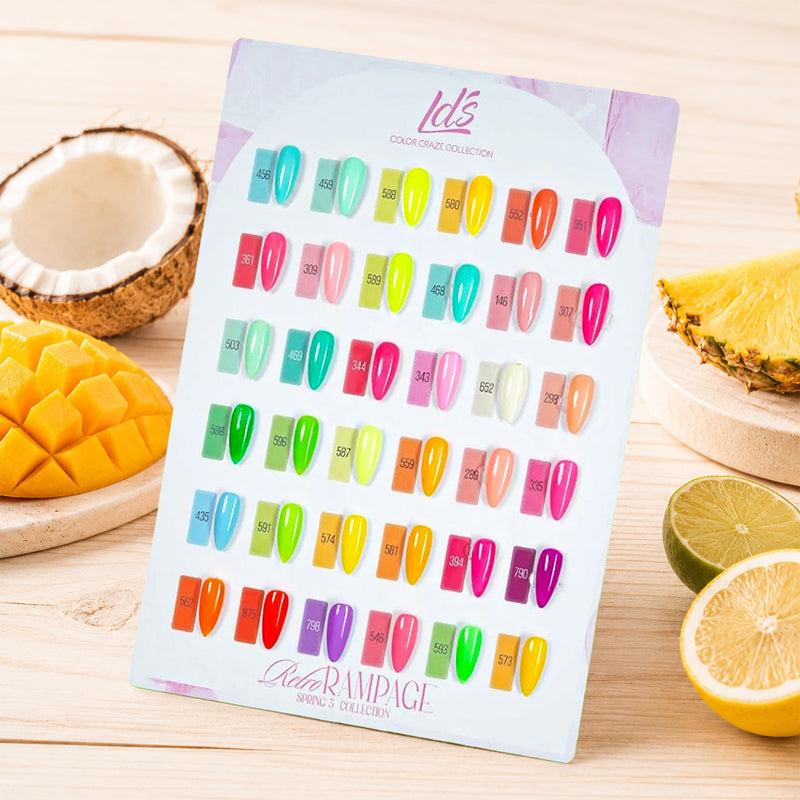 lds
COLOR CRAZE COLLECTION
456 459 588 580 552 351
361 309 589 468 146 307
503 469 344 343 652 298
598 596 587 559 289 335
435 591 574 581 394 790
562 875 798 546 593 573
Retro RAMPAGE
SPRING 3 COLLECTION